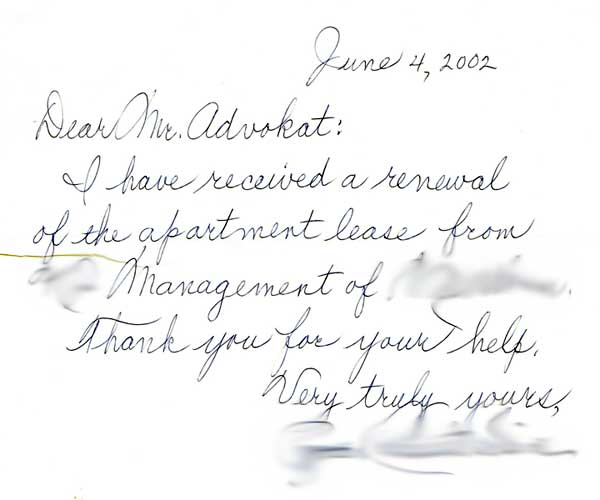 June 4, 2002
Dear Mr. Advokat:
I have received a renewal
of the apartment lease from
Management of
Thank you for your help.
Very truly yours,